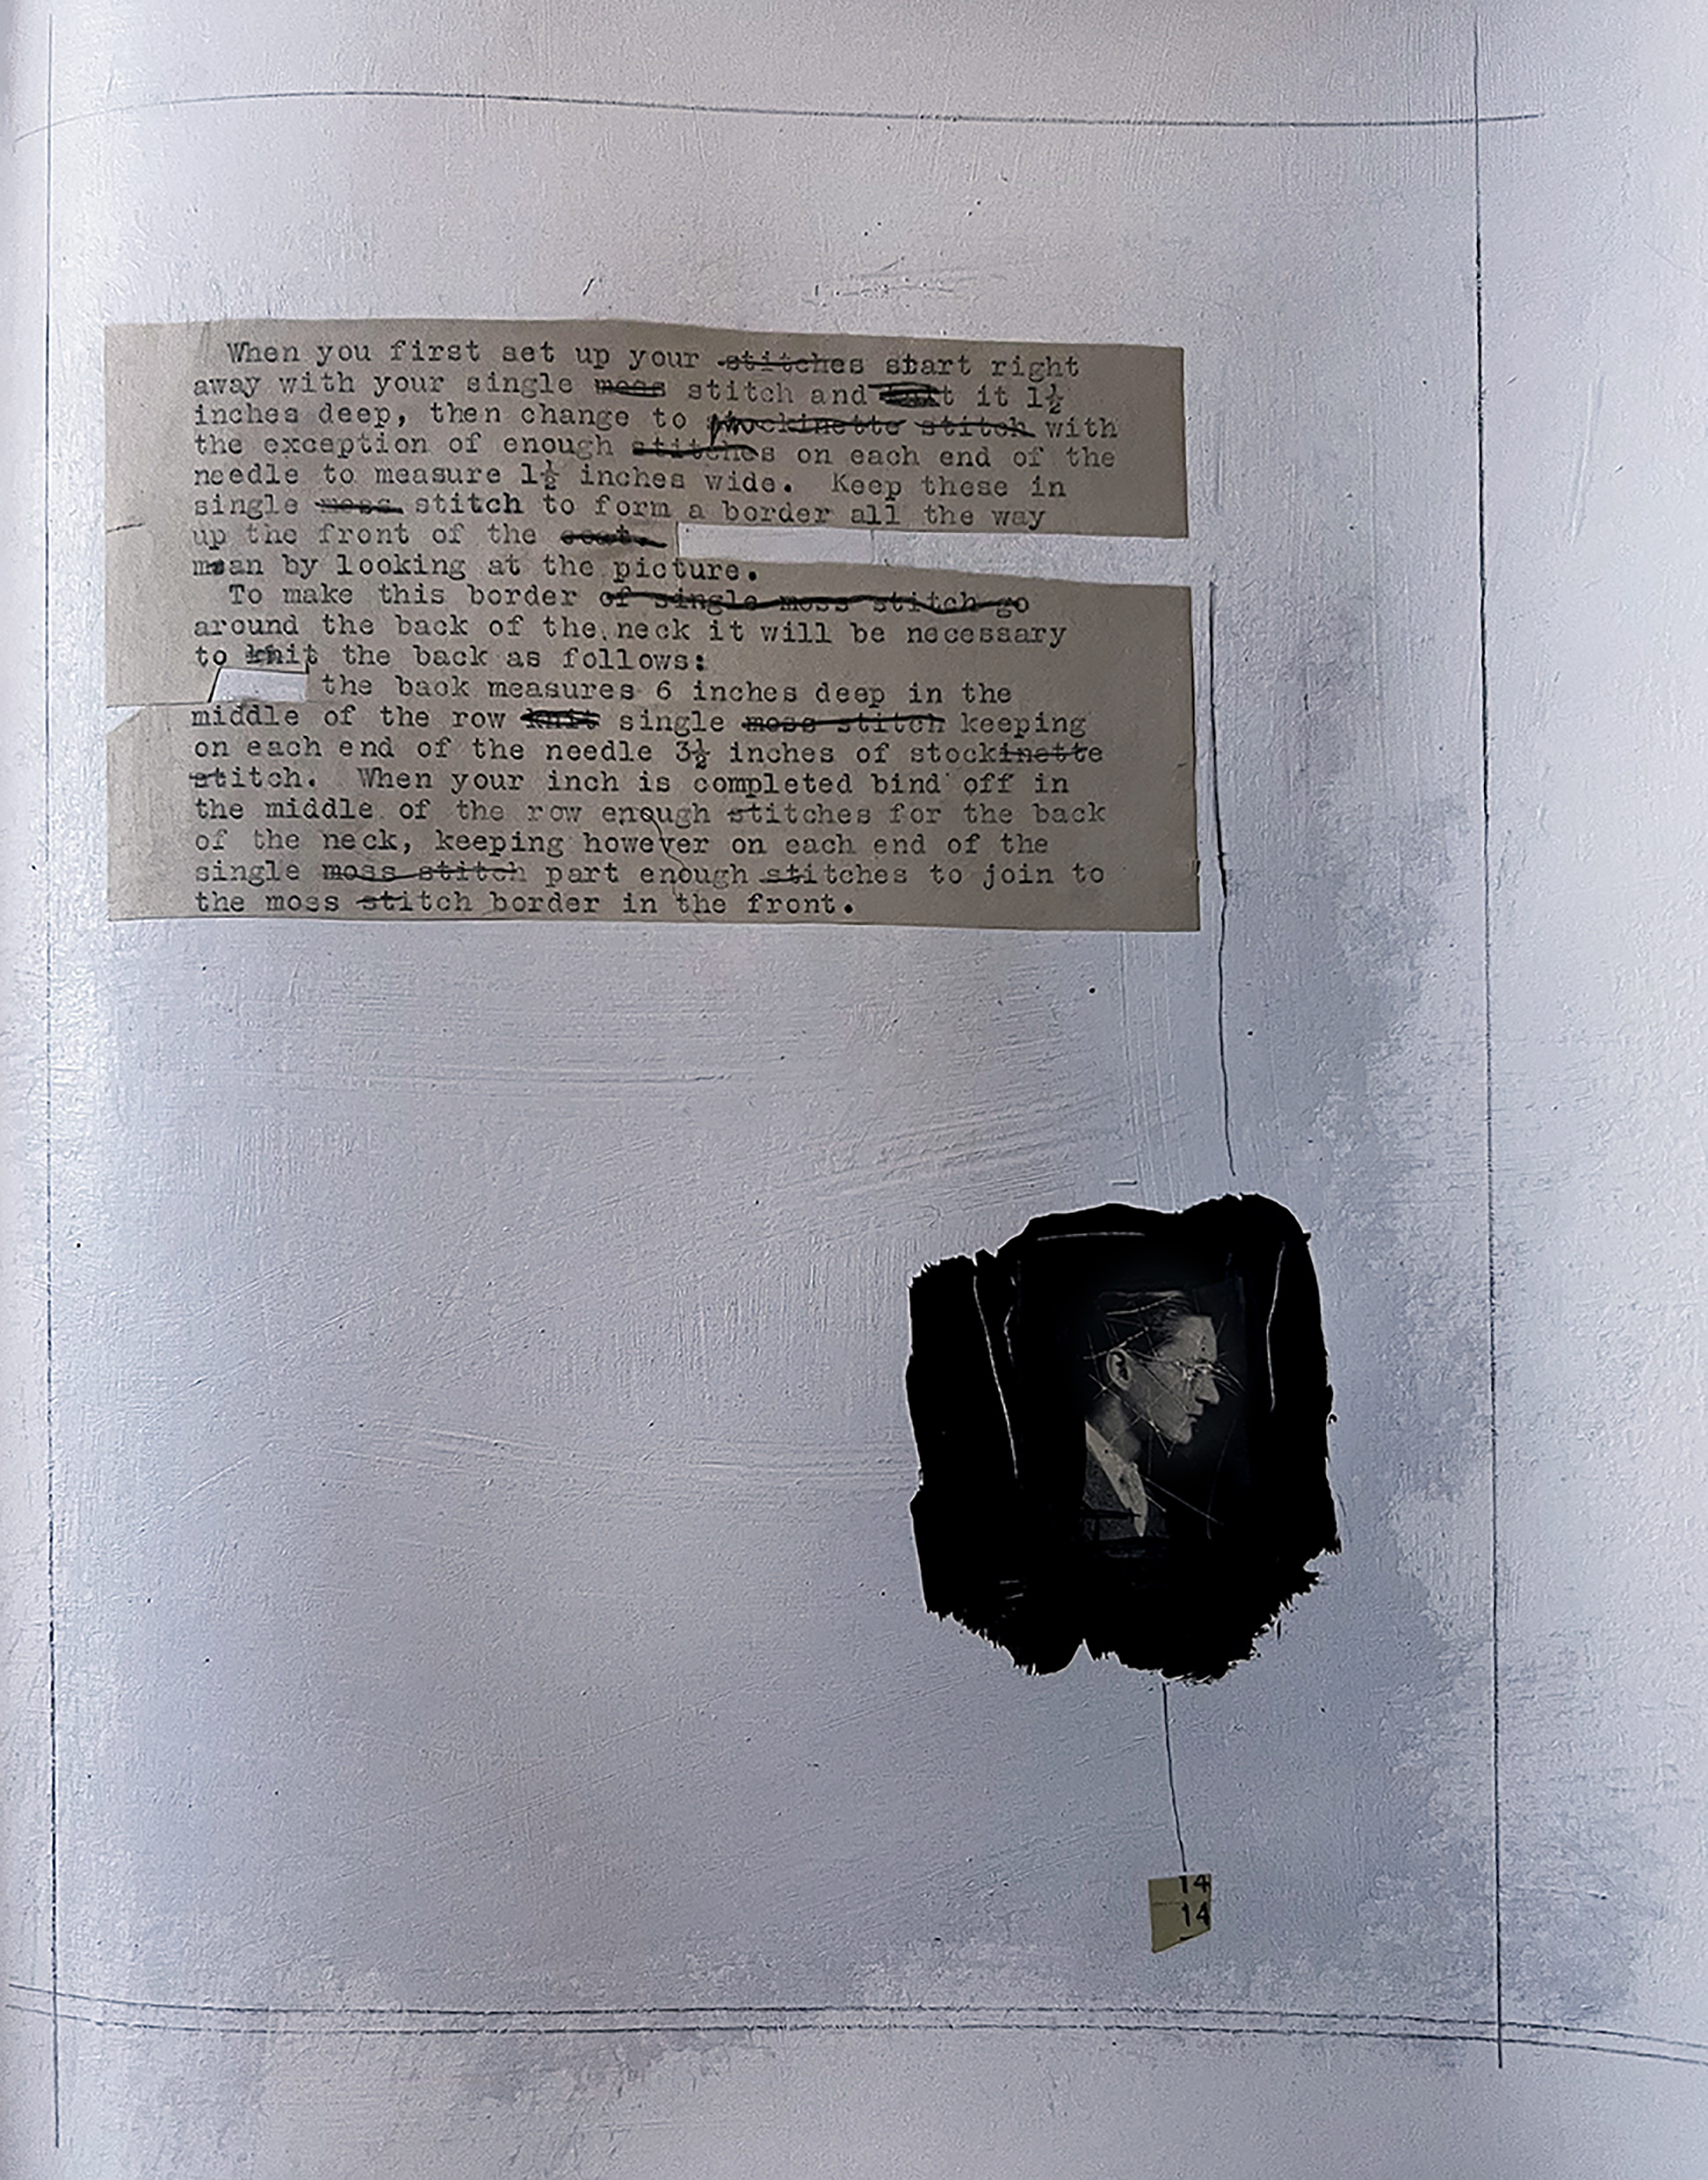 When you first set up your stitches start right
away with your single moss stitch and knit it 1½
inches deep, then change to stockinette stitch with
the exception of enough stitches on each end of the
needle to measure 1½ inches wide. Keep these in
single moss stitch to form a border all the way
up the front of the coat.
mean by looking at the picture.
To make this border of single moss stitch go
around the back of the neck it will be necessary
to knit the back as follows:
the back measures 6 inches deep in the
middle of the row knit single moss stitch keeping
on each end of the needle 3½ inches of stockinette
stitch. When your inch is completed bind off in
the middle of the row enough stitches for the back
of the neck, keeping however on each end of the
single moss stitch part enough stitches to join to
the moss stitch border in the front.
14
14